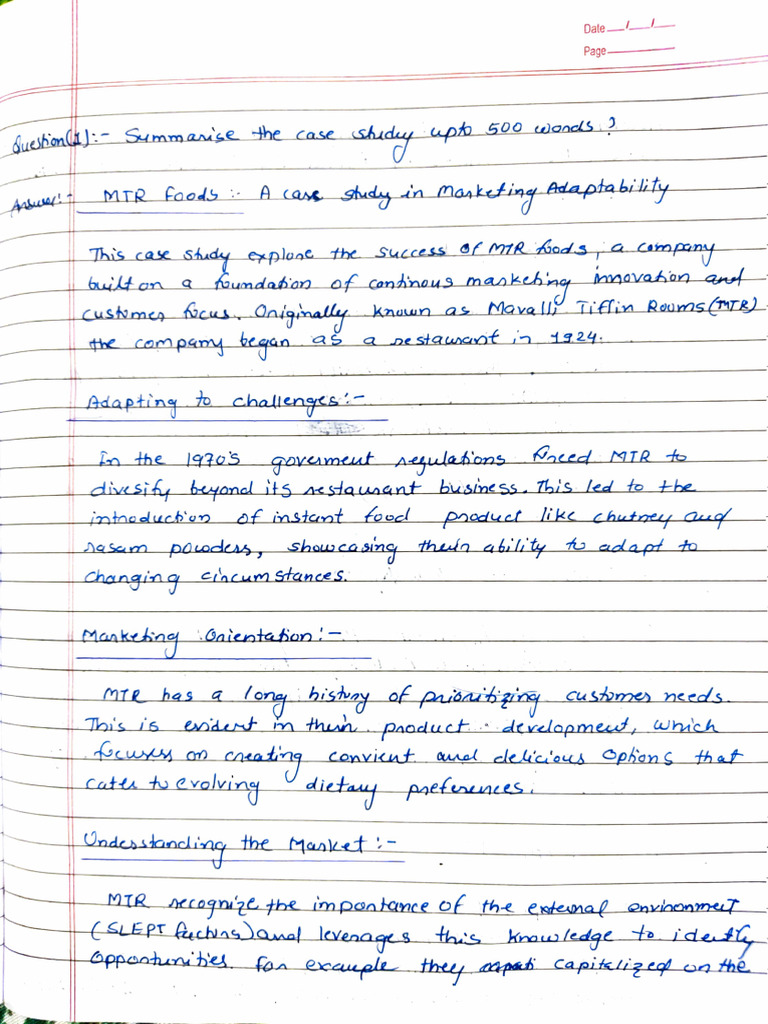 Date / /
Page
Question(1):- Summarise the case study upto 500 words?
Answer:- MTR foods :- A case study in Marketing Adaptability
This case study explore the success of MTR foods, a company
built on a foundation of continous marketing innovation and
customer focus. Originally known as Mavalli Tiffin Rooms(MTR)
the company began as a restaurant in 1924.
Adapting to challenges:-
In the 1970's goverment regulations forced MTR to
divesify beyond its restaurant business. This led to the
introduction of instant food product like chutney and
rasam powders, showcasing their ability to adapt to
changing circumstances.
Marketing Orientation:-
MTR has a long history of prioritizing customer needs.
This is evident in their product development, which
focuses on creating convient and delicious options that
cates to evolving dietary preferences.
Understanding the Market:-
MTR recognize the importance of the external environment
(SLEPT factors) and leverages this knowledge to identfy
opportunities. for example they capitalized on the